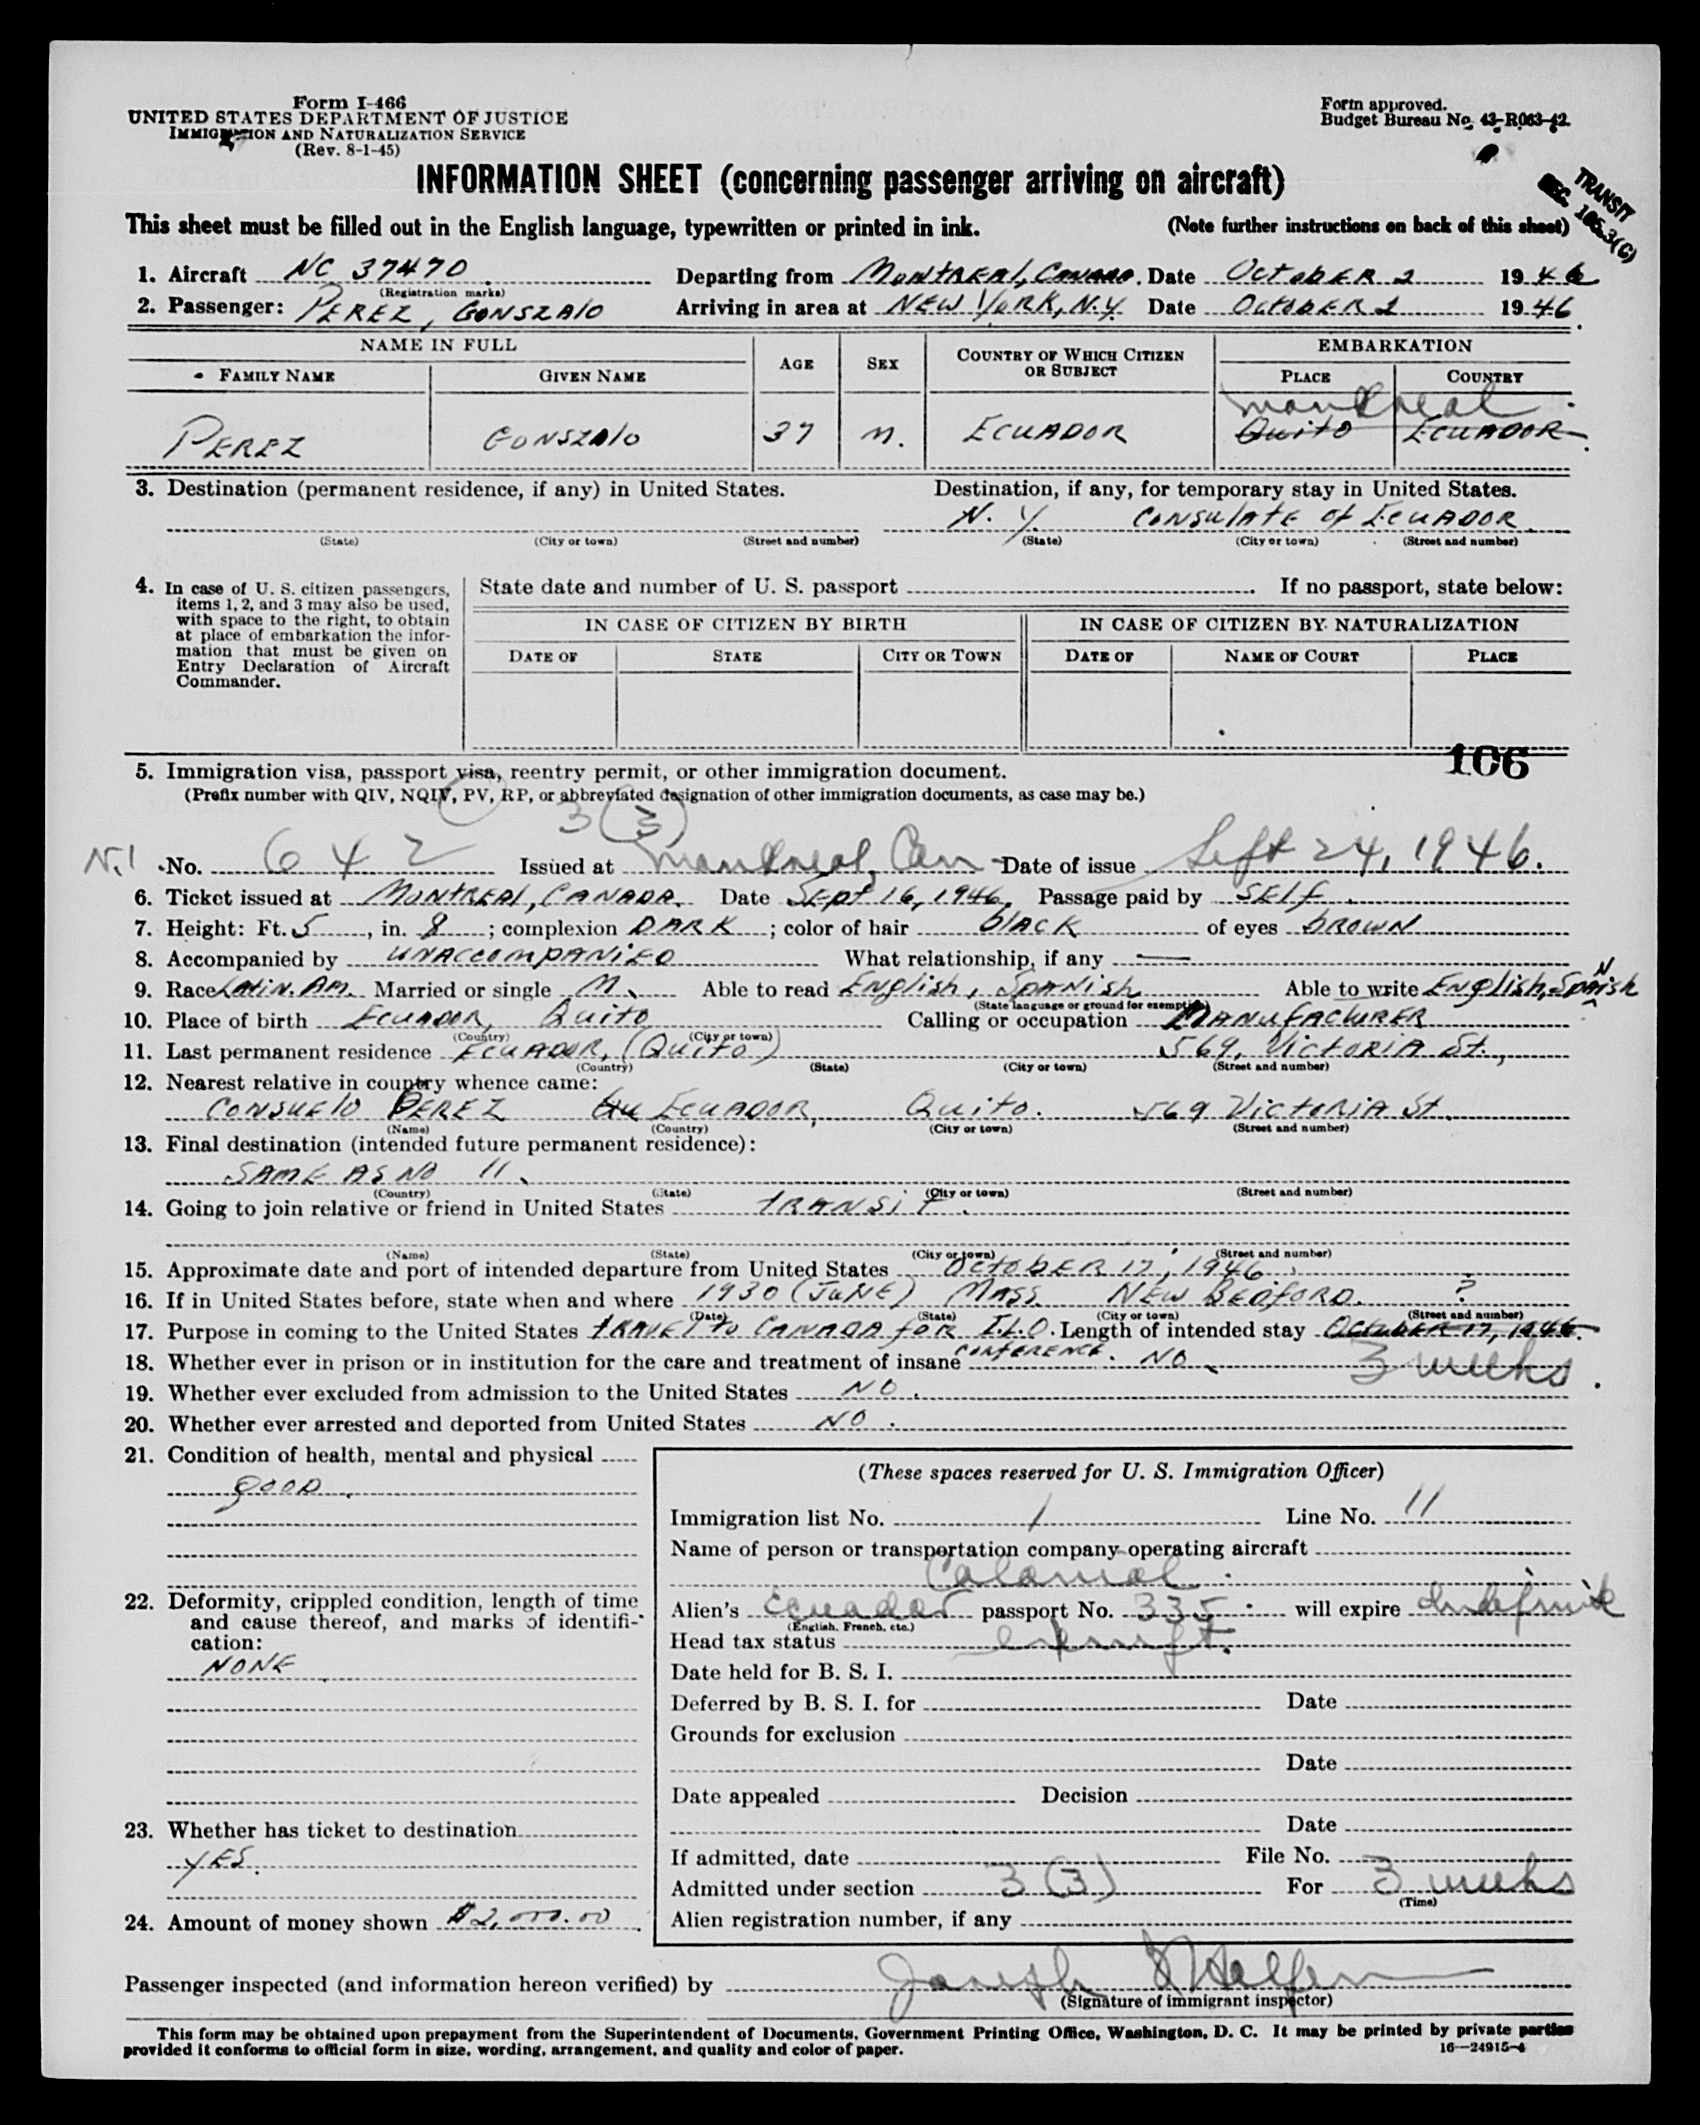 Form I-466
UNITED STATES DEPARTMENT OF JUSTICE
IMMIGRATION AND NATURALIZATION SERVICE
(Rev. 8-1-45)
Form approved.
Budget Bureau No. 43-R063-42.
INFORMATION SHEET (concerning passenger arriving on aircraft)
TRANSIT
SEC. 105.3(C)
This sheet must be filled out in the English language, typewritten or printed in ink. (Note further instructions on back of this sheet)
1. Aircraft NC 37470 Departing from MONTREAL, CANADA. Date OCTOBER 2 1946
(Registration marks)
2. Passenger: PEREZ, GONSZALO Arriving in area at NEW YORK, N.Y. Date OCTOBER 2 1946
NAME IN FULL AGE SEX COUNTRY OF WHICH CITIZEN OR SUBJECT EMBARKATION
FAMILY NAME GIVEN NAME PLACE COUNTRY
Montreal
PEREZ GONSZALO 37 M. ECUADOR Quito ECUADOR
3. Destination (permanent residence, if any) in United States. Destination, if any, for temporary stay in United States.
N.Y. CONSULATE of ECUADOR
(State) (City or town) (Street and number) (State) (City or town) (Street and number)
4. In case of U. S. citizen passengers, items 1, 2, and 3 may also be used, with space to the right, to obtain at place of embarkation the information that must be given on Entry Declaration of Aircraft Commander.
State date and number of U. S. passport If no passport, state below:
IN CASE OF CITIZEN BY BIRTH IN CASE OF CITIZEN BY NATURALIZATION
DATE OF STATE CITY OR TOWN DATE OF NAME OF COURT PLACE
106
5. Immigration visa, passport visa, reentry permit, or other immigration document.
(Prefix number with QIV, NQIV, PV, RP, or abbreviated designation of other immigration documents, as case may be.)
3(3)
No. 642 Issued at Montreal, Can Date of issue Sept 24, 1946.
6. Ticket issued at MONTREAL, CANADA. Date SEPT 16, 1946. Passage paid by SELF.
7. Height: Ft. 5, in. 8; complexion DARK; color of hair BLACK of eyes BROWN
8. Accompanied by UNACCOMPANIED What relationship, if any —
9. Race LATIN. AM. Married or single M. Able to read English, SPANish Able to write English, SpaNish
(State language or ground for exemption)
10. Place of birth ECUADOR, Quito Calling or occupation MANUFACTURER
(Country) (City or town)
11. Last permanent residence ECUADOR, (Quito) 569, VICTORIA St.,
(Country) (State) (City or town) (Street and number)
12. Nearest relative in country whence came:
CONSUELO PEREZ Qu ECUADOR, Quito. 569 VICTORIA St.
(Name) (Country) (City or town) (Street and number)
13. Final destination (intended future permanent residence):
SAME AS NO 11.
(Country) (State) (City or town) (Street and number)
14. Going to join relative or friend in United States TRANSIT.
(Name) (State) (City or town) (Street and number)
15. Approximate date and port of intended departure from United States OCTOBER 17, 1946
16. If in United States before, state when and where 1930 (JUNE) MASS. NEW BEDFORD. ?
(Date) (State) (City or town) (Street and number)
17. Purpose in coming to the United States TRAVEL to CANADA for I.L.O. CONFERENCE. Length of intended stay OCTOBER 17, 1946.
3 weeks
18. Whether ever in prison or in institution for the care and treatment of insane NO.
19. Whether ever excluded from admission to the United States NO.
20. Whether ever arrested and deported from United States NO.
21. Condition of health, mental and physical
GOOD.
22. Deformity, crippled condition, length of time and cause thereof, and marks of identification:
NONE
23. Whether has ticket to destination
YES.
24. Amount of money shown $2,000.00
(These spaces reserved for U. S. Immigration Officer)
Immigration list No. 1 Line No. 11
Name of person or transportation company operating aircraft
Colonial
Alien's Ecuador passport No. 335 will expire Indefinite
(English, French, etc.)
Head tax status exempt.
Date held for B. S. I.
Deferred by B. S. I. for Date
Grounds for exclusion
Date
Date appealed Decision
Date
If admitted, date File No.
Admitted under section 3(3) For 3 weeks
(Time)
Alien registration number, if any
Passenger inspected (and information hereon verified) by Joseph
(Signature of immigrant inspector)
This form may be obtained upon prepayment from the Superintendent of Documents, Government Printing Office, Washington, D. C. It may be printed by private parties
provided it conforms to official form in size, wording, arrangement, and quality and color of paper. 16—24915-4